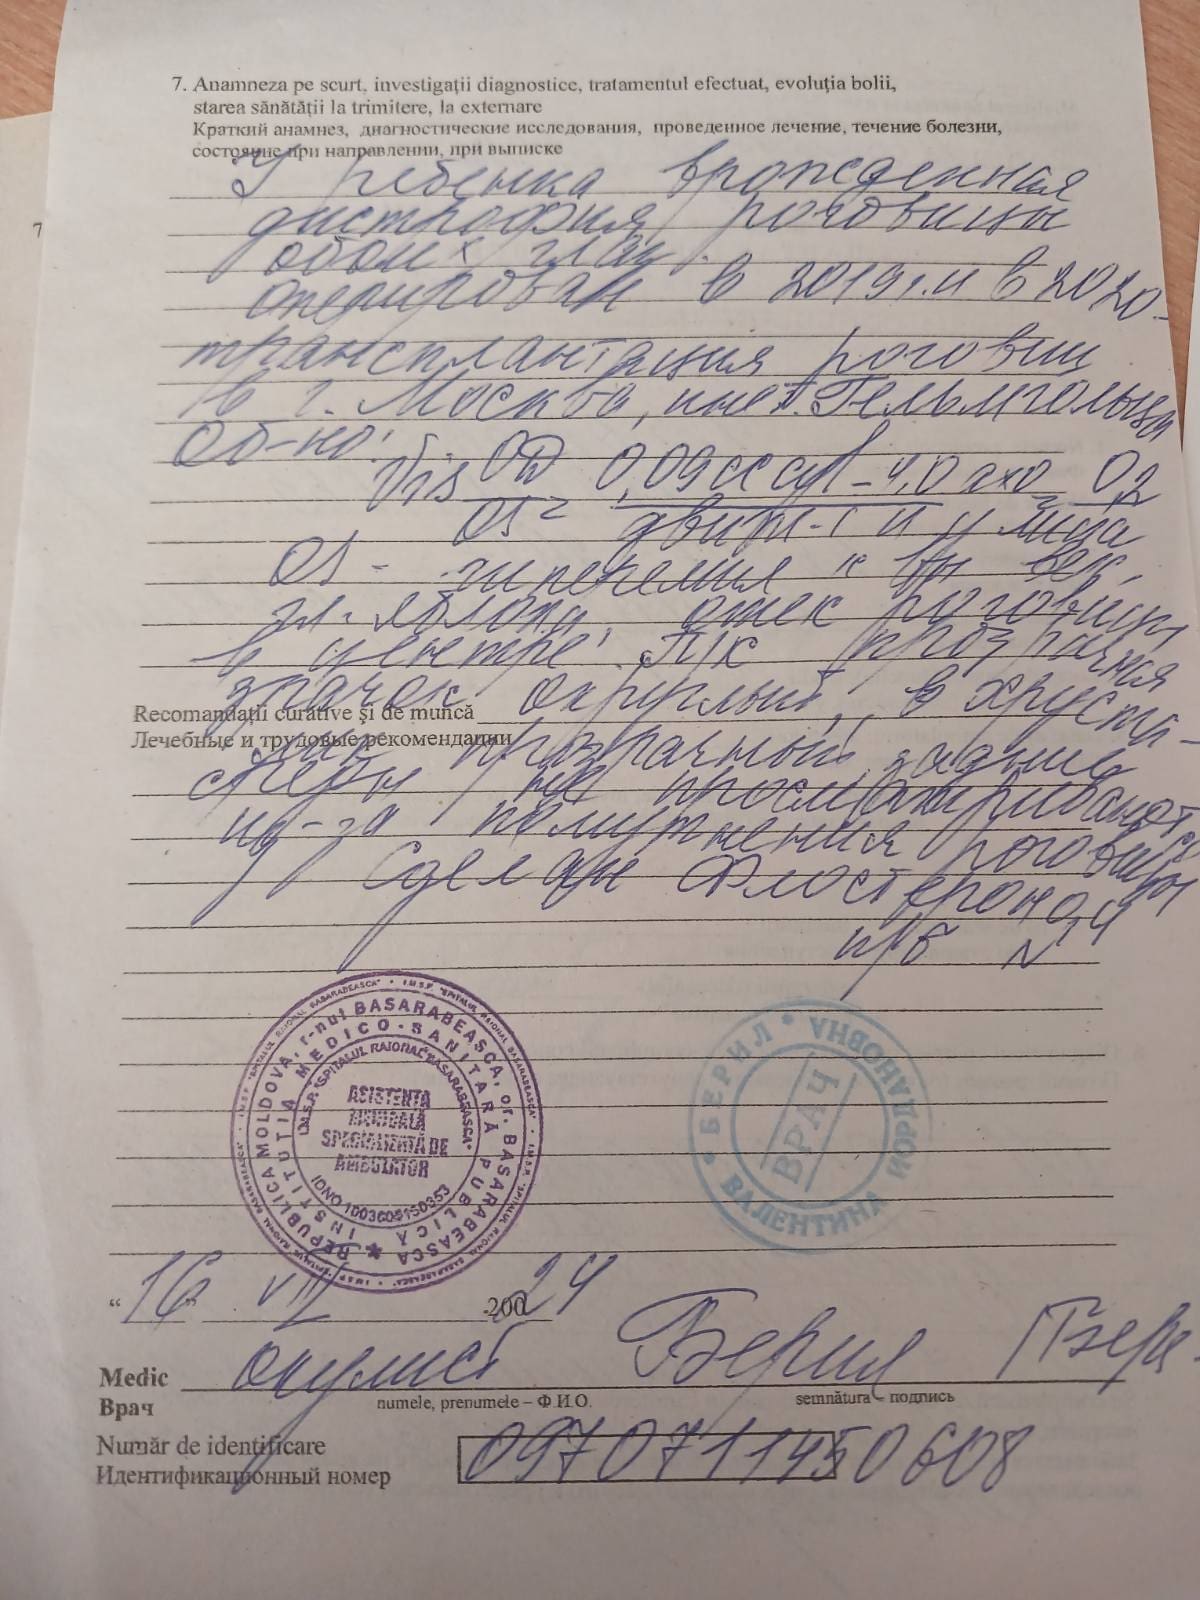 7. Anamneza pe scurt, investigații diagnostice, tratamentul efectuat, evoluția bolii,
starea sănătății la trimitere, la externare
Краткий анамнез, диагностические исследования, проведенное лечение, течение болезни,
состояние при направлении, при выписке
У ребенка врожденная
дистрофия роговицы
обоих глаз.
оперирован в 2019 г. и в 2020 -
трансплантация роговиц
в г. Москва, инст. Гельмгольца
Об-но:
Vis OD 0,09 с cyl - 4,0 ax 0 = 0,2
OS = движ-е у лица
OS - гиперемия век,
гл. яблока, отек роговицы
в центре. П/к прозрачная
зрачок округлый, хруста-
Recomandații curative și de muncă
лик прозрачный, задние
Лечебные и трудовые рекомендации
отделы не просматриваются
из-за помутнения роговицы
Сделан Флостерон 0,4
п/б N
REPUBLICA MOLDOVA, r-nul BASARABEASCA, or. BASARABEASCA
INSTITUȚIA MEDICO-SANITARĂ PUBLICĂ
I.M.S.P. "SPITALUL RAIONAL BASARABEASCA"
ASISTENȚA
MEDICALĂ
SPECIALIZATĂ DE
AMBULATOR
IDNO 1003605150353
БЕРИЛ
ВАЛЕНТИНА
ЙОРДАНОВНА
ВРАЧ
"16" VII 200 24
Medic окулист Берил
Врач
numele, prenumele – Ф.И.О. semnătura – подпись
Număr de identificare 0970711450608
Идентификационный номер
7